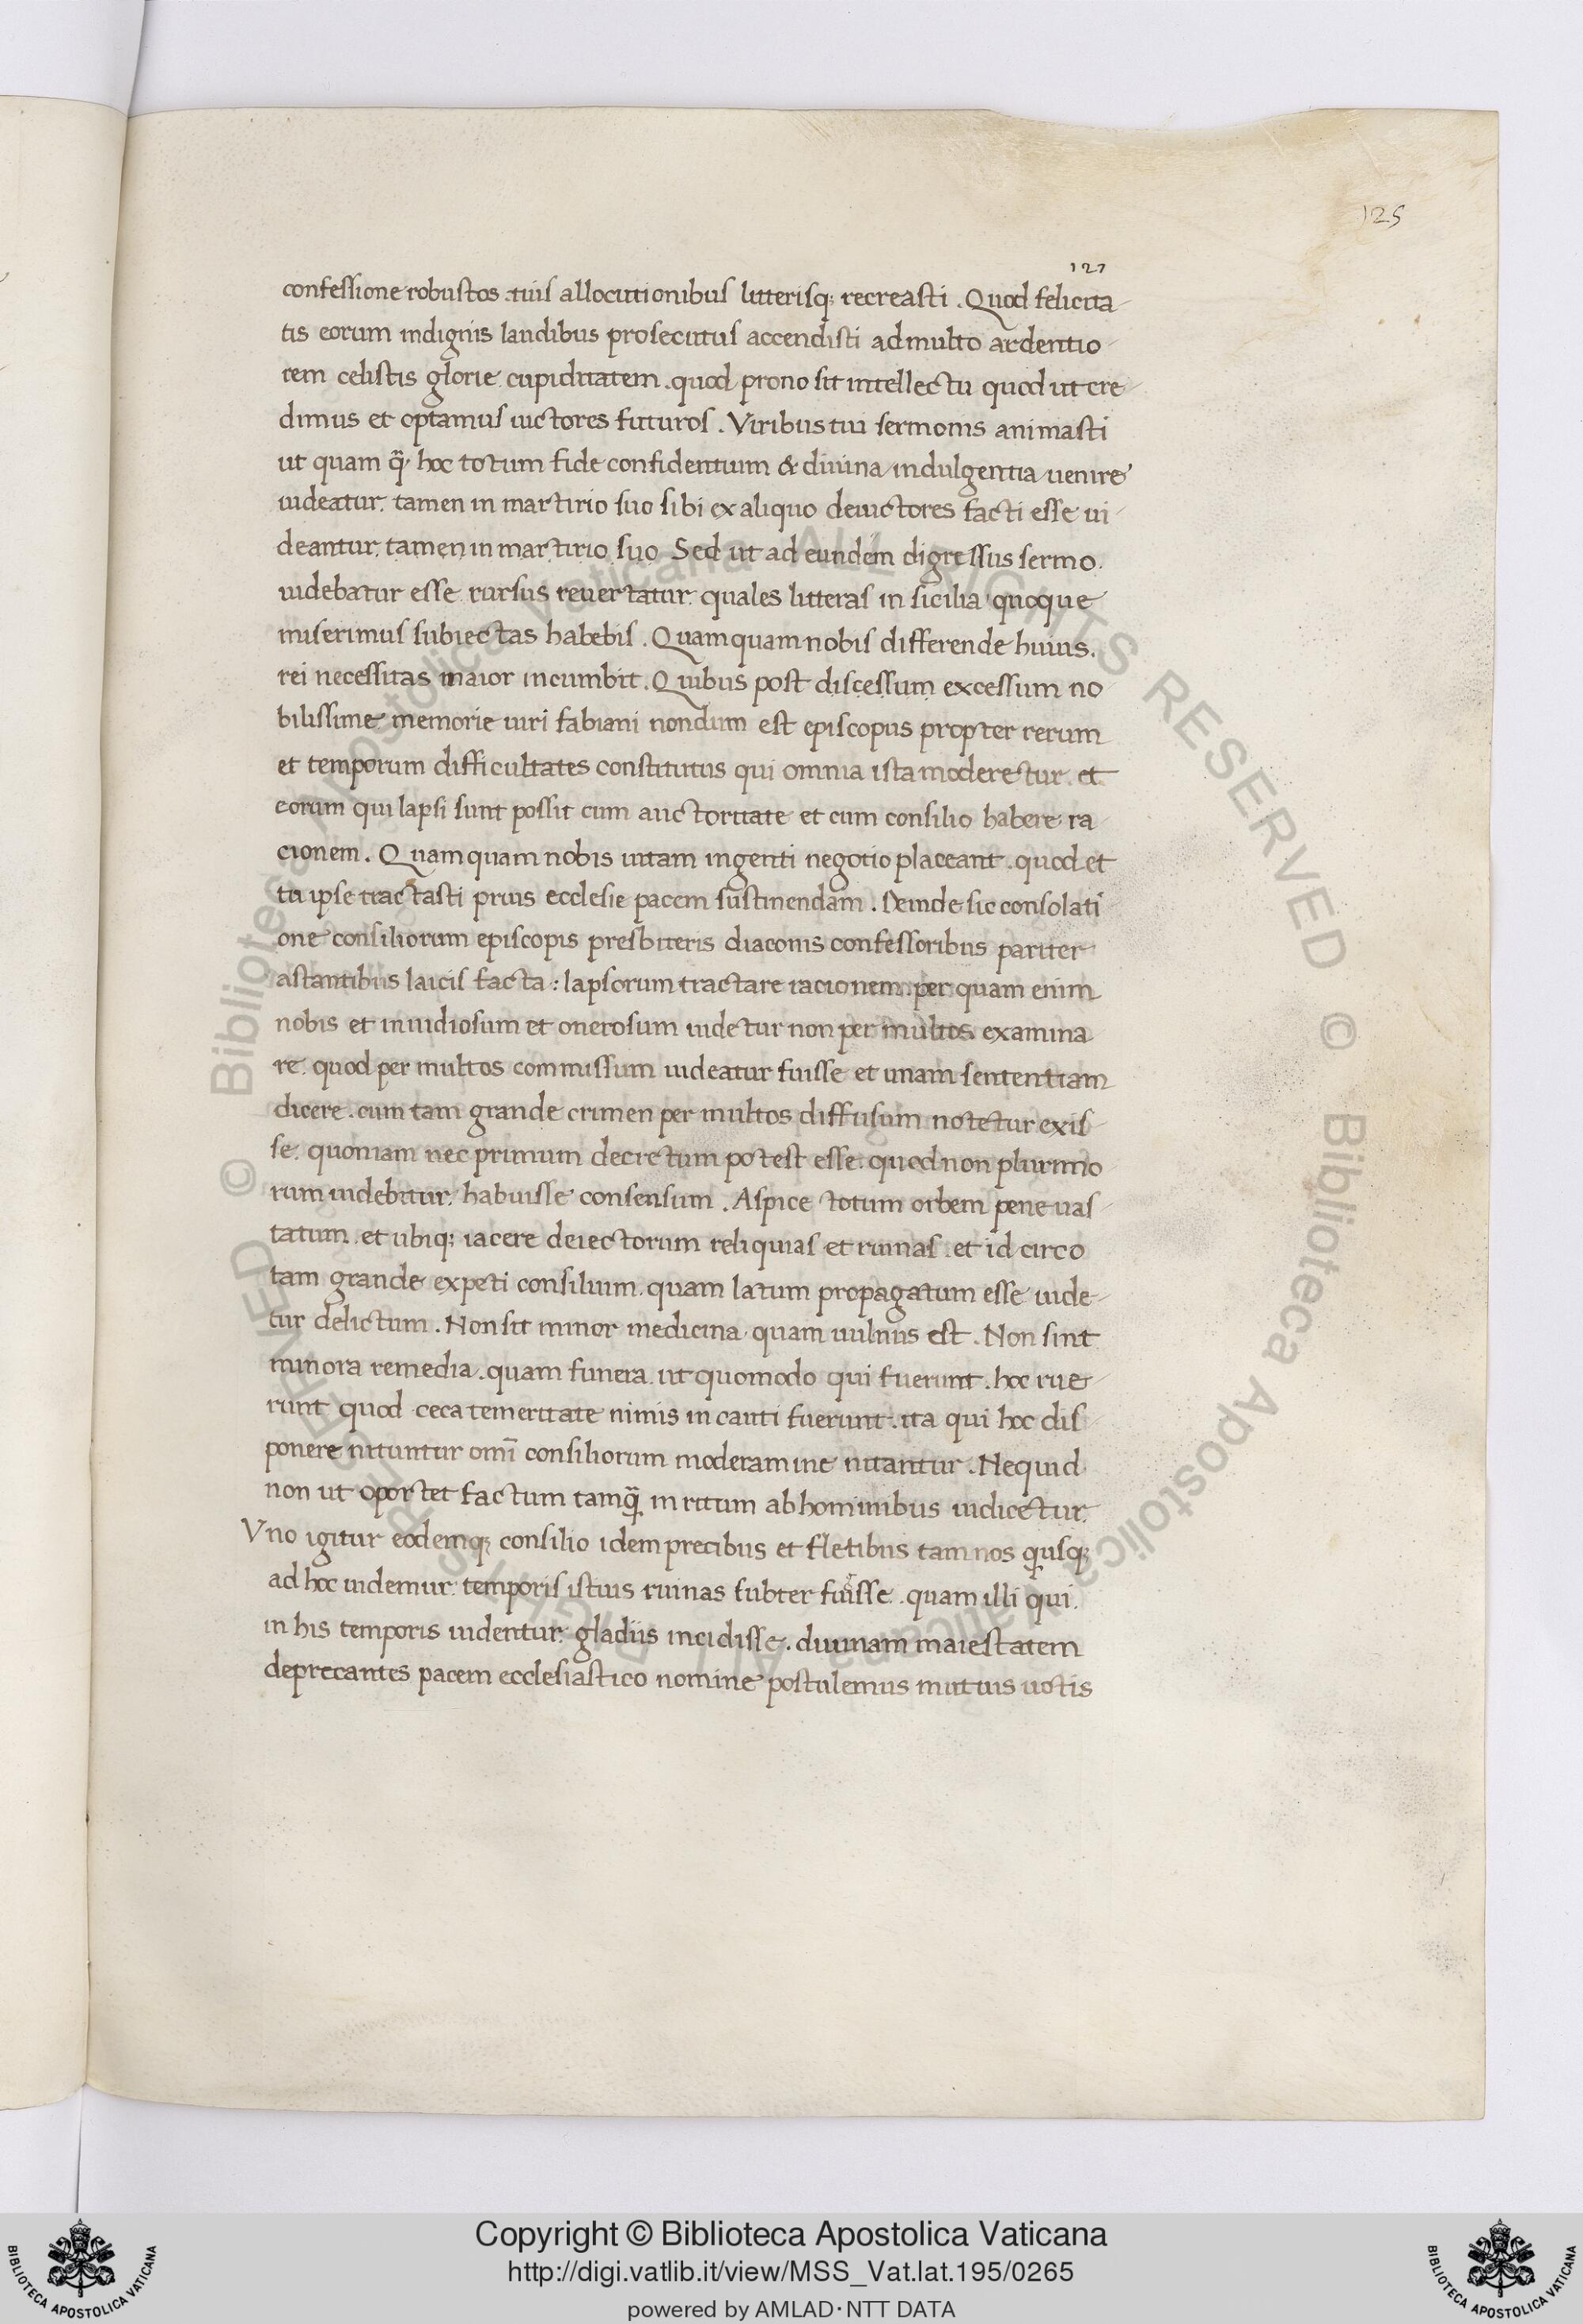 125
127
confessione robustos. tuis allocutionibus litterisq; recreasti. Quod felicita
tis eorum indignis laudibus prosecutus accendisti ad multo ardentio
rem celistis glorie cupiditatem. quod prono sit intellectu quod ut cre
dimus et optamus uictores futuros. Viribus tui sermonis animasti
ut quam q̄ hoc totum fide confidentium & diuina indulgentia uenire
uideatur. tamen in martirio suo sibi ex aliquo deuictores facti esse ui
deantur. tamen in martirio suo Sed ut ad eundem digressus sermo.
uidebatur esse rursus reuertatur. quales litteras in sicilia quoque
miserimus subiectas habebis. Quamquam nobis differende huius.
rei necessitas maior incumbit. Quibus post discessum excessum no
bilissime memorie uiri fabiani nondum est episcopus propter rerum
et temporum difficultates constitutus qui omnia ista moderetur. et
eorum qui lapsi sunt possit cum auctoritate et cum consilio habere ra
cionem. Quamquam nobis uitam ingenti negotio placeant. quod et
tu ipse tractasti prius ecclesie pacem sustinendam. Deinde sic consolati
one consiliorum episcopis presbiteris diaconis confessoribus pariter
astantibus laicis facta: lapsorum tractare racionem. per quam enim
nobis et inuidiosum et onerosum uidetur non per multos examina
re. quod per multos commissum uideatur fuisse et unam sententiam
dicere. cum tam grande crimen per multos diffusum notetur exis
se. quoniam nec primum decretum potest esse. quod non plurimo
rum uidebitur. habuisse consensum. Aspice totum orbem pene uas
tatum. et ubiq; iacere deiectorum reliquias et ruinas. et id circo
tam grande expeti consilium. quam latum propagatum esse uide
tur delictum. Non sit minor medicina quam uulnus est. Non sint
minora remedia. quam funera. ut quomodo qui fuerunt. hoc rue
runt quod ceca temeritate nimis incauti fuerunt. ita qui hoc dis
ponere nituntur omī consiliorum moderamine nitantur. Nequid
non ut oportet factum tamq̄ inritum ab hominibus iudicetur.
Vno igitur eodemq; consilio idem precibus et fletibus tam nos quisq;
ad hoc uidemur. temporis istius ruinas subter fuisse. quam illi qui.
in his temporis uidentur. gladiis incidisse. diuinam maiestatem
deprecantes pacem ecclesiastico nomine postulemus mutuis uotis
© Biblioteca Apostolica Vaticana ALL RIGHTS RESERVED © Biblioteca Apostolica Vaticana ALL RIGHTS RESERVED
Copyright © Biblioteca Apostolica Vaticana
http://digi.vatlib.it/view/MSS_Vat.lat.195/0265
powered by AMLAD·NTT DATA
BIBLIOTECA APOSTOLICA VATICANA
BIBLIOTECA APOSTOLICA VATICANA